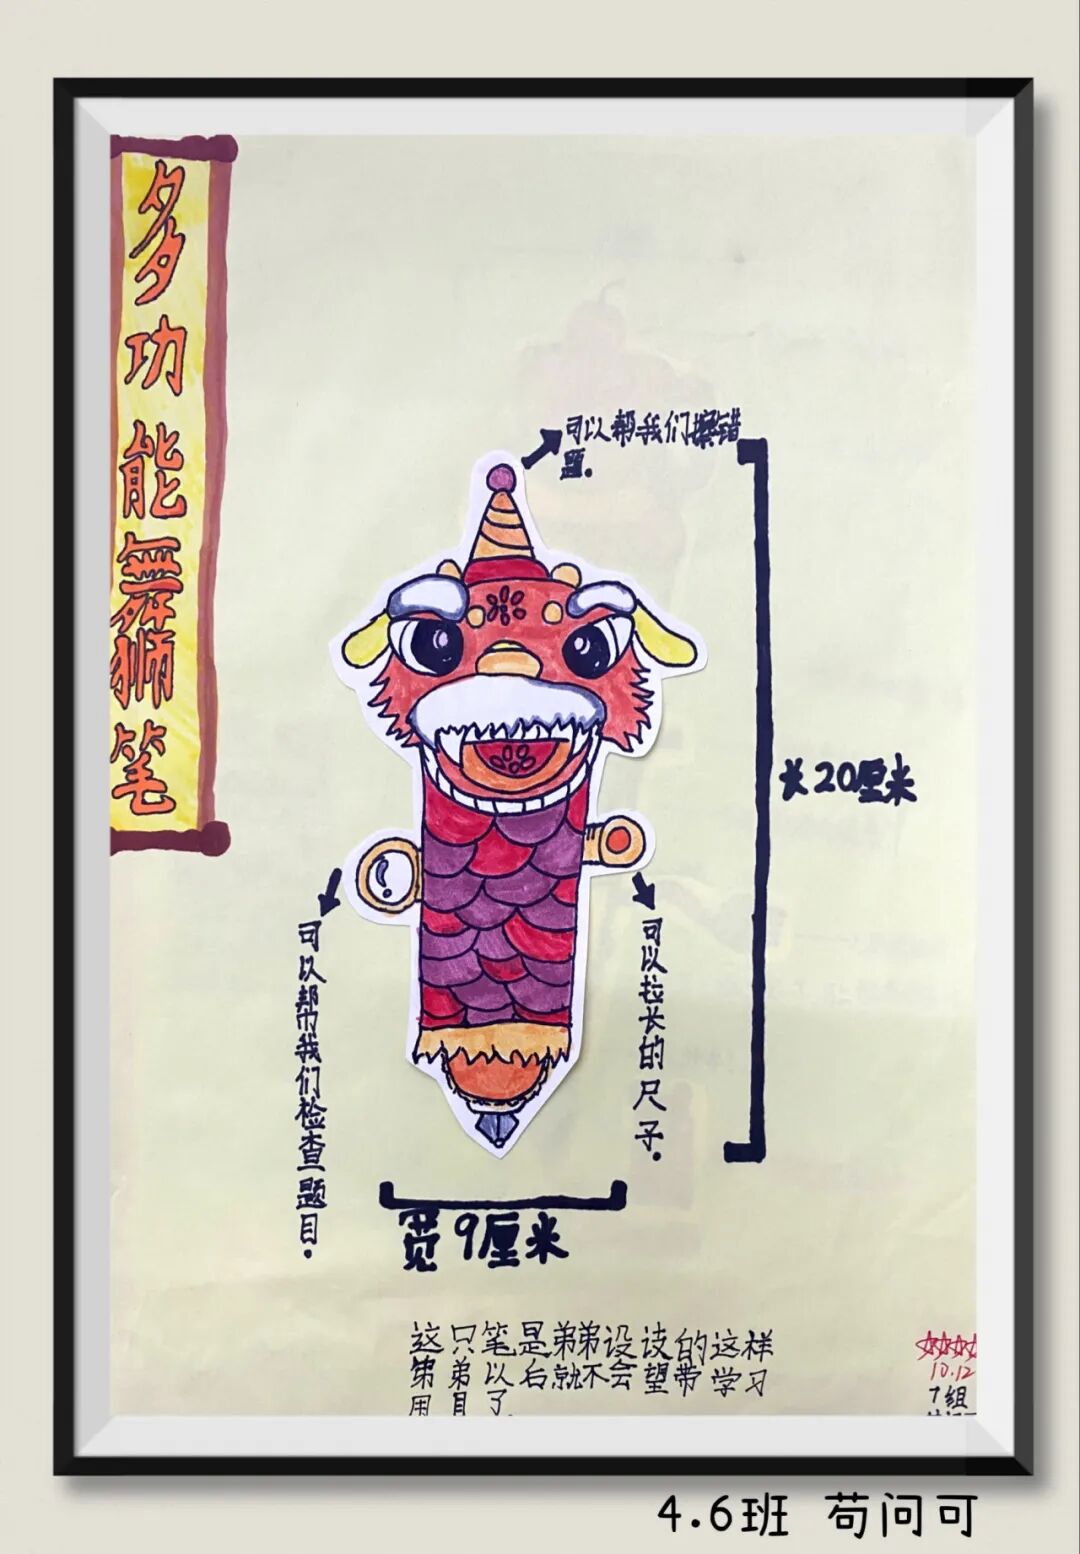 多功能舞狮笔
可以帮我们擦错
题.
长20厘米
可以帮我们检查题目.
可以拉长的尺子.
宽9厘米
这只笔是弟弟设的这样
弟以后就不会望带学习
用目了.
10.12
7组
4.6班 苟问可